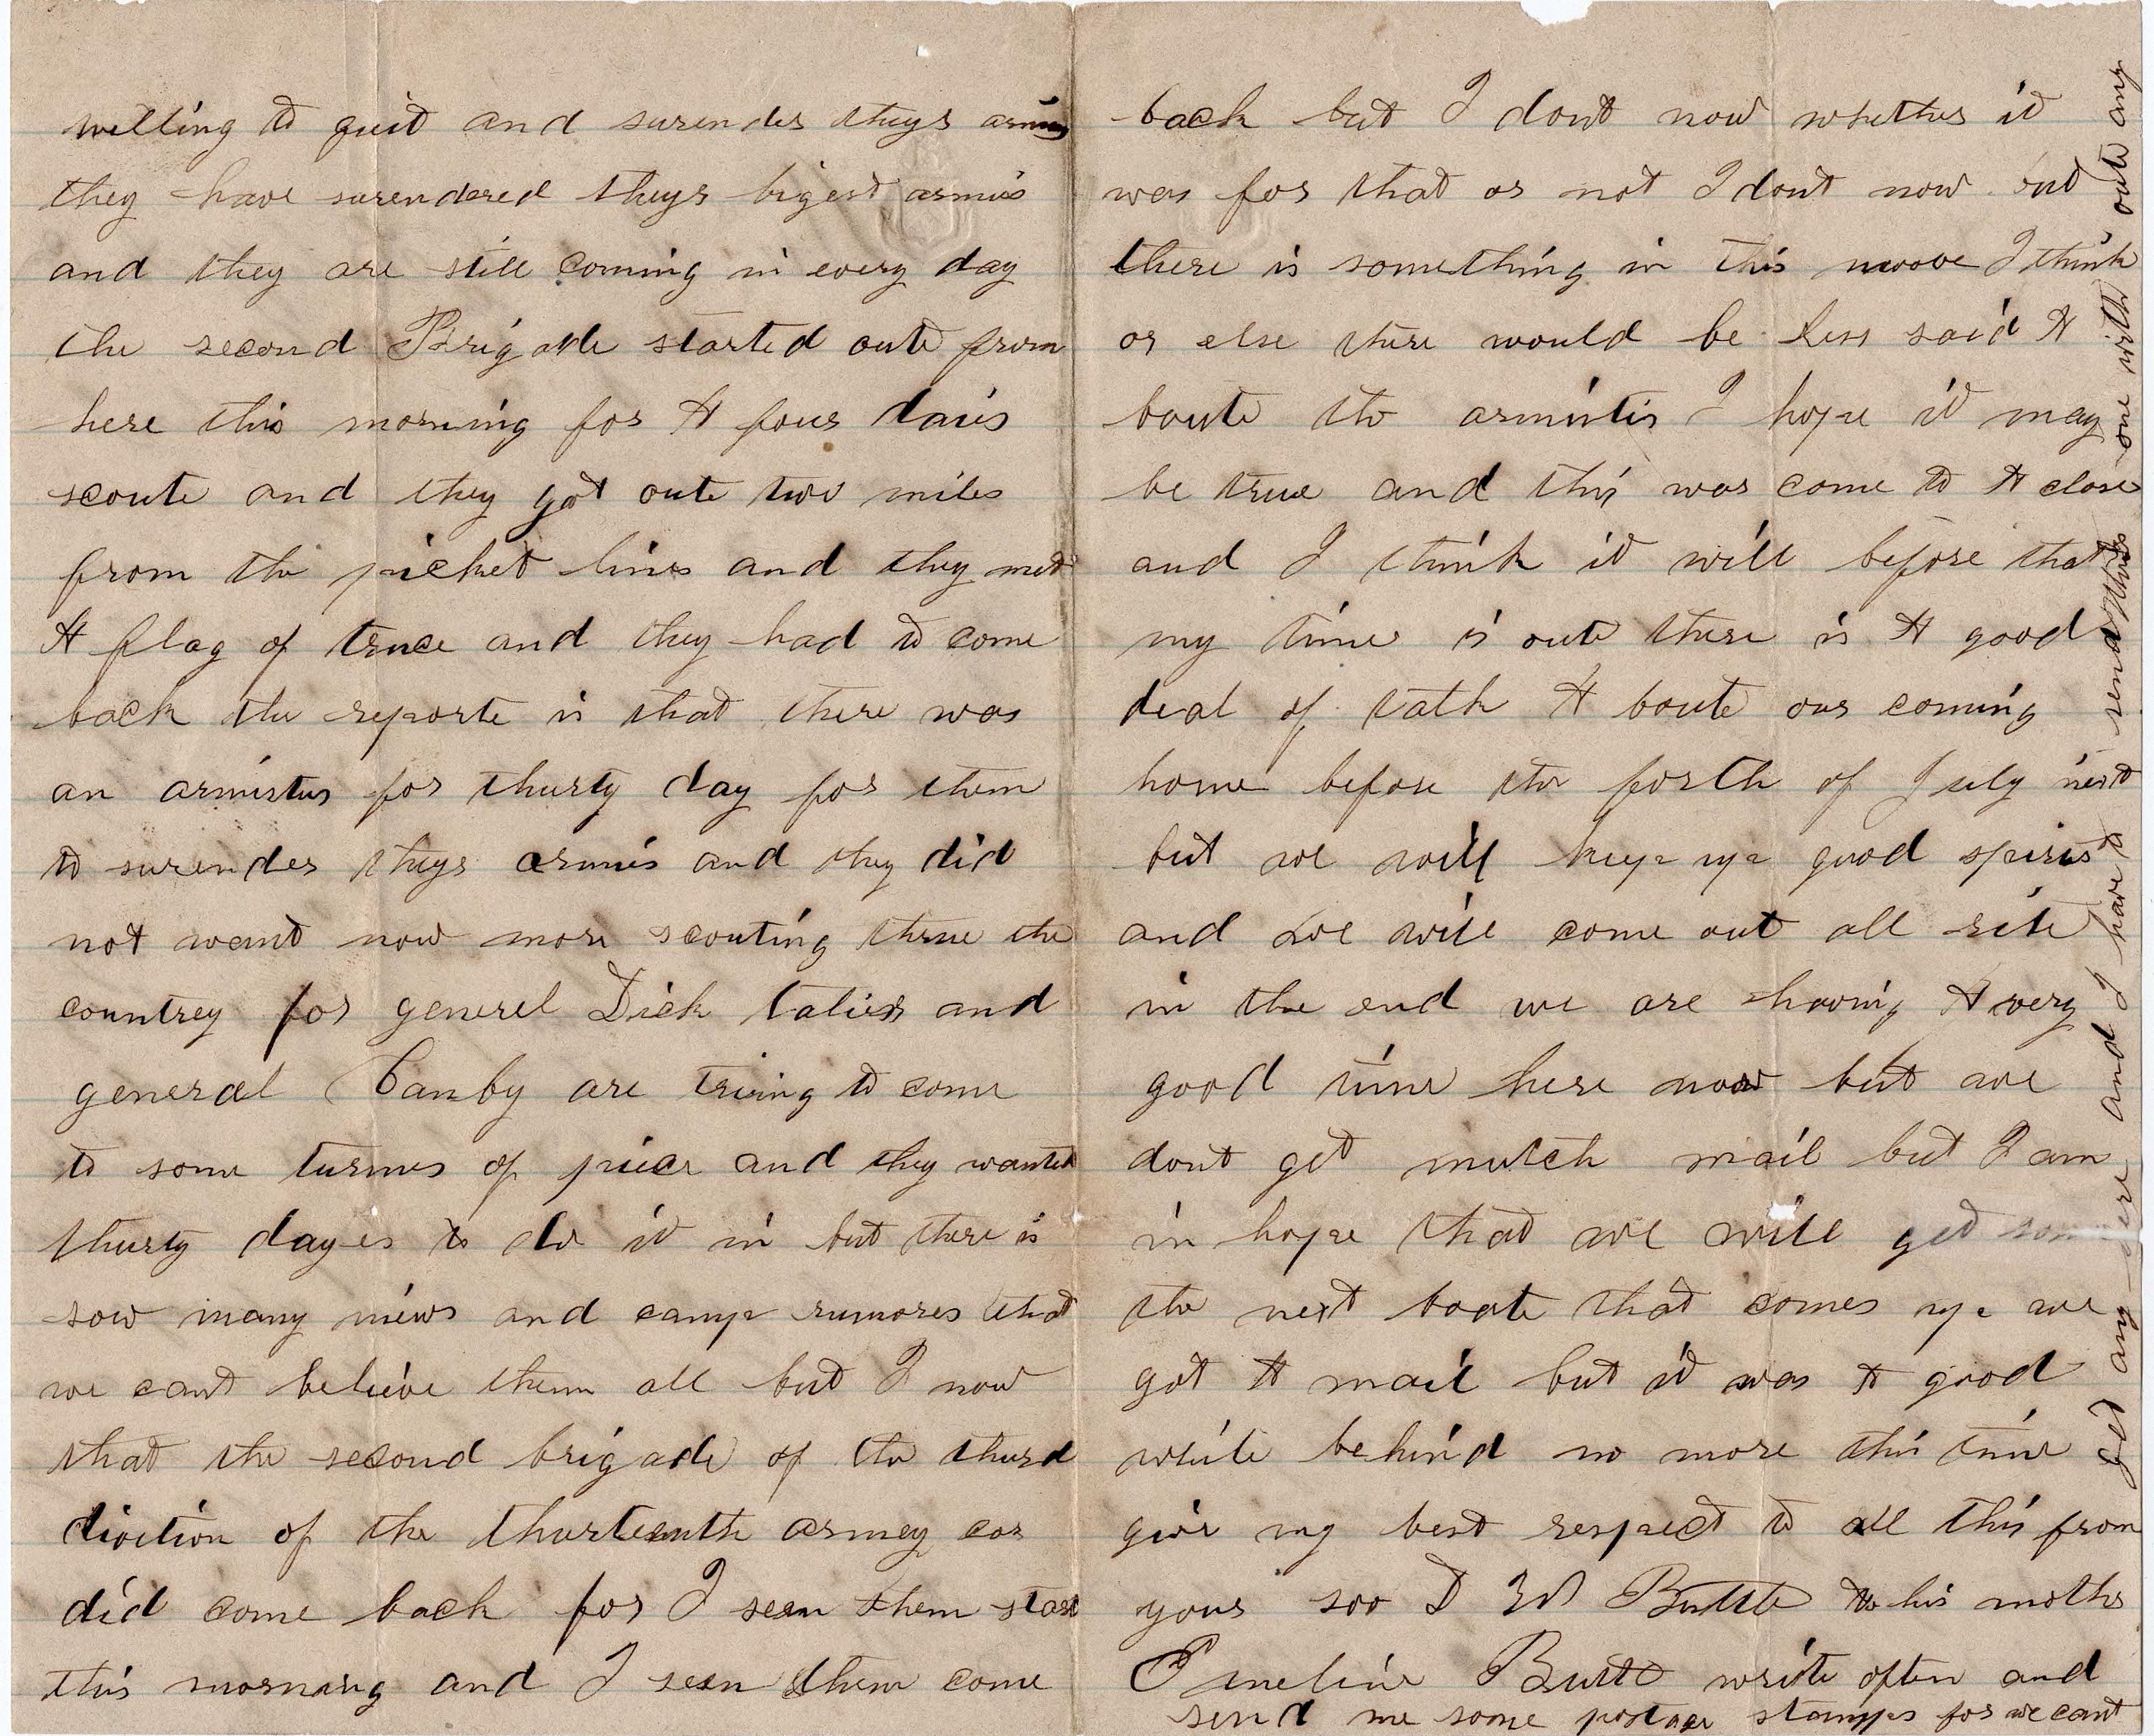 welling to quit and surender theys armies
they have surendered theys bigest armies
and they are still coming in every day
the second Brigade started oute from
here this morning for A four dais
scoute and they got oute two miles
from the picket lines and they met
A flag of truce and they had to come
back the reporte is that there was
an armistus for thurty day for them
to surender theys armies and they did
not want now more scouting thrue the
countrey for generel Dick and
general Canby are triing to come
to some turmes of piece and they wanted
thurty dayes to do it in but there is
sow many niews and camp rumores that
we cant believe them all but I now
that the second brigade of the thurd
divition of the thurteenth armey cor
did come back for I seen them start
this morning and I seen them come
back but I dont now whether it
was for that or not I dont now but
there is something in this moove I think
or else there would be less said A
boute the armistis I hope it may
be true and this war come to A close
and I think it will before that
my time is oute there is A good
deal of talk A boute our coming
home before the forth of July next
but we will keep up good spirits
and we will come out all rite
in the end we are having A very
good time here now but we
dont get mutch mail but I am
in hope that we will get some
the next boate that comes up we
got A mail but it was A good
while behind no more this time
give my best respect to all this from
your son D W Butts to his mother
Emeline Butts write often and
send me some postage stamps for we cant
get any here and I have to send this one with oute any